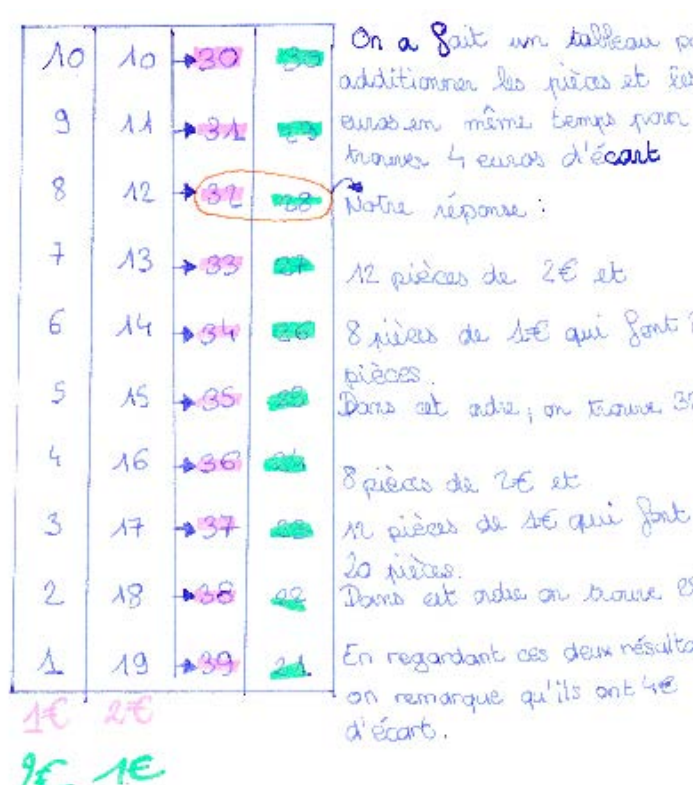 10 10 30 30
9 11 31 29
8 12 32 28
7 13 33 27
6 14 34 26
5 15 35 25
4 16 36 24
3 17 37 23
2 18 38 22
1 19 39 21
1€ 2€
2€ 1€
On a fait un tableau
additionner les pièces et les
euros en même temps pour
trouver 4 euros d'écart
Notre réponse :
12 pièces de 2€ et
8 pièces de 1€ qui font
pièces.
Dans cet ordre, on trouve
8 pièces de 2€ et
12 pièces de 1€ qui font
20 pièces.
Dans cet ordre on trouve
En regardant ces deux
on remarque qu'ils ont 4€
d'écart.